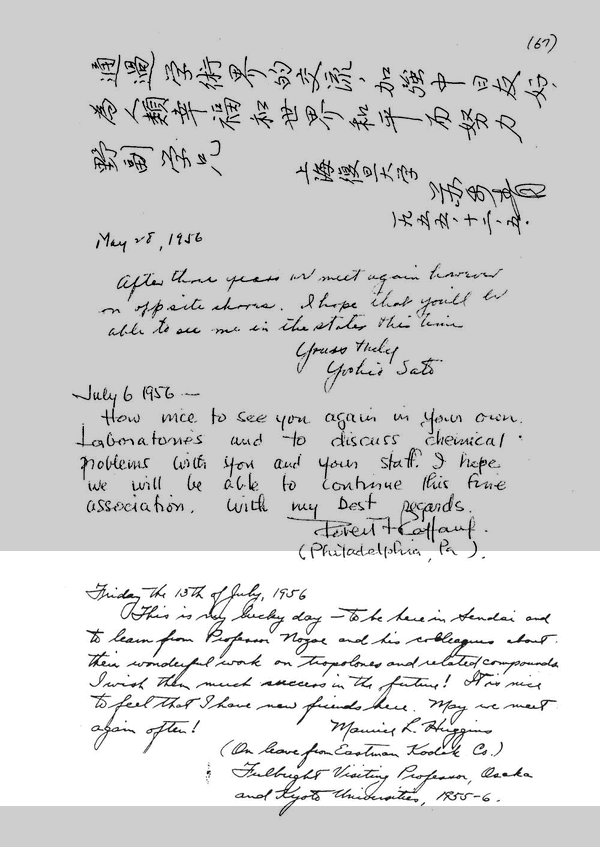 (67)
通過学術界的交流,加強中日友好,
為人類幸福和世界和平而努力
野副学兄
上海復旦大学
蘇步青
一九五五、十二、五.
May 28, 1956
After three years we meet again however
on opposite shores. I hope that you'll be
able to see me in the states this time
Yours truly
Yoshio Sato
July 6 1956 —
How nice to see you again in your own
Laboratories and to discuss chemical
problems with you and your staff. I hope
we will be able to continue this fine
association. With my best regards.
(Philadelphia, Pa).
Friday the 13th of July, 1956
This is my lucky day – to be here in Sendai and
to learn from Professor Nozoe and his colleagues about
their wonderful work on tropolones and related compounds.
I wish them much success in the future! It is nice
to feel that I have new friends here. May we meet
again often!
Maurice L. Huggins
(On leave from Eastman Kodak Co.)
Fulbright Visiting Professor, Osaka
and Kyoto Universities, 1955-6.